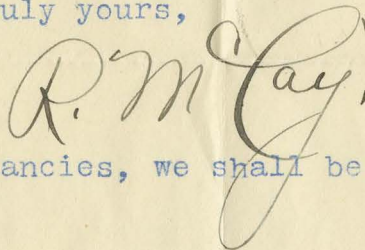 uly yours,
R. McCay
ancies, we shall be